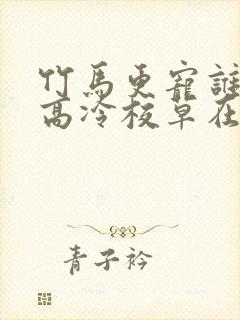 竹馬更寵誰
高冷校草在
青子衿